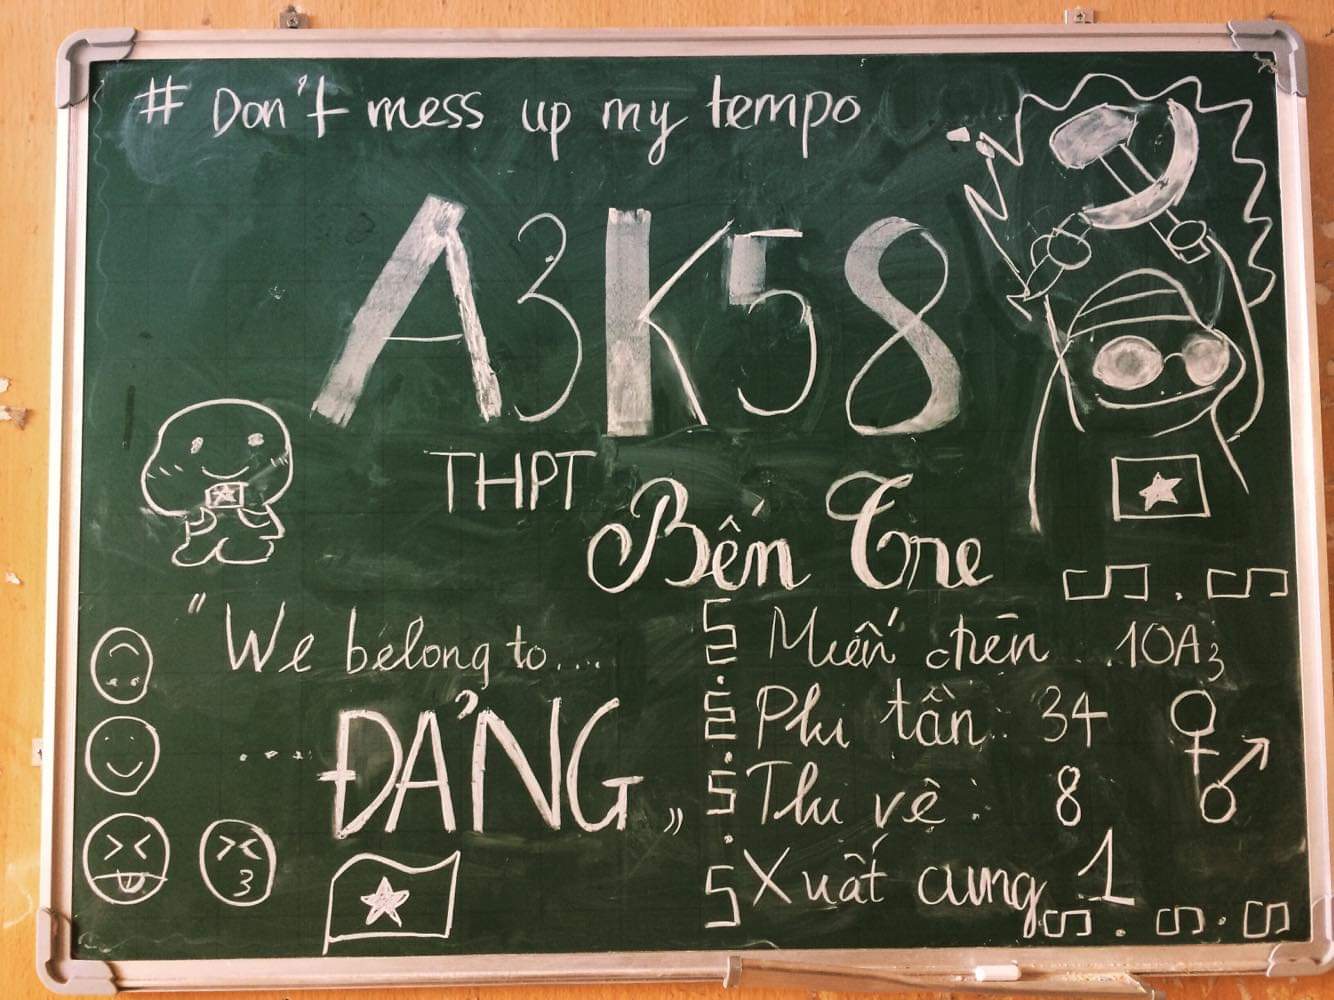 # Don't mess up my tempo
A3K58
THPT
Bến Tre
"We belong to....
.... ĐẢNG"
Miến chiên ... 10A3
Phi tần: 34
Thu vệ: 8
Xuất cung 1